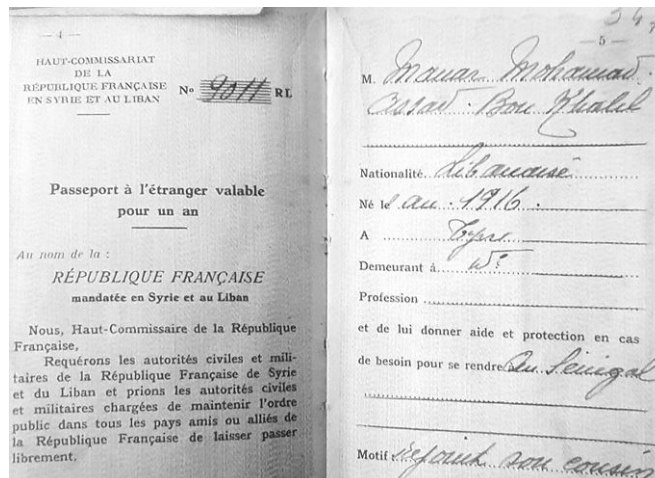 — 4 —
HAUT-COMMISSARIAT
DE LA
RÉPUBLIQUE FRANÇAISE
EN SYRIE ET AU LIBAN
Nº 9011 RL
Passeport à l'étranger valable
pour un an
Au nom de la :
RÉPUBLIQUE FRANÇAISE
mandatée en Syrie et au Liban
Nous, Haut-Commissaire de la République
Française,
Requérons les autorités civiles et mili-
taires de la République Française de Syrie
et du Liban et prions les autorités civiles
et militaires chargées de maintenir l'ordre
public dans tous les pays amis ou alliés de
la République Française de laisser passer
librement.
— 5 —
M. Mohamad
Assad Bou Khalil
Nationalité Libanaise
Né le en 1916
A Tyre
Demeurant à
Profession
et de lui donner aide et protection en cas
de besoin pour se rendre Au Sénégal
Motif : rejoint son cousin